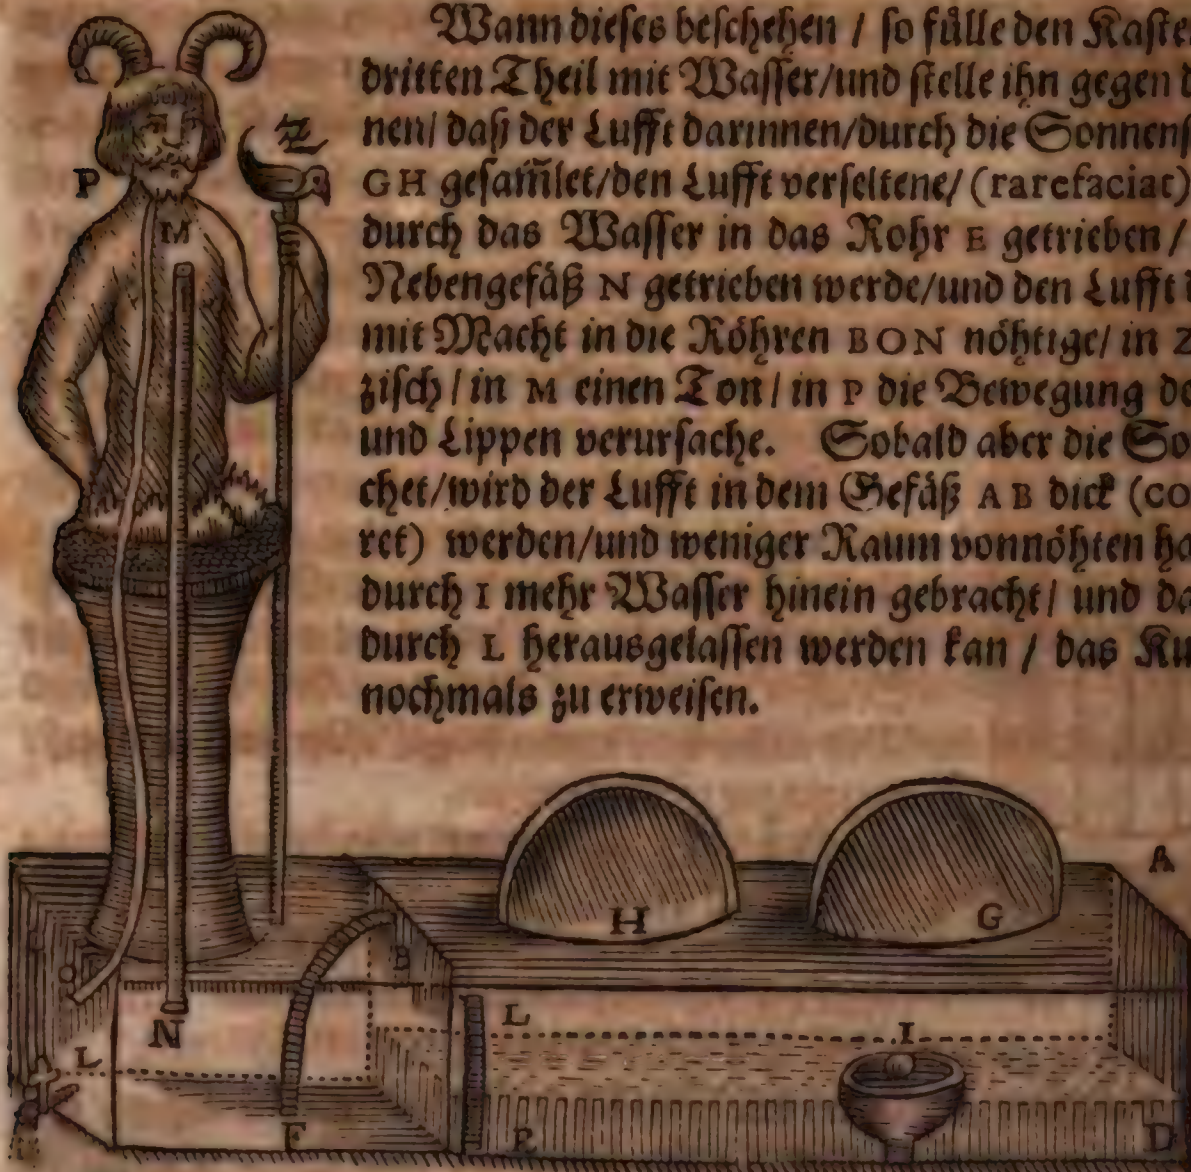 Wann dieses beschehen / so fülle den Kaste
dritten Theil mit Wasser/und stelle ihn gegen d
nen/ daß der Lufft darinnen/durch die Sonnens
GH gesam̃let/den Lufft verseltene/ (rarefaciat)
durch das Wasser in das Rohr E getrieben /
Nebengefäß N getrieben werde/und den Lufft d
mit Macht in die Röhren BON nöhtige/ in Z
zisch / in M einen Ton / in P die Bewegung de
und Lippen verursache. Sobald aber die So
chet/wird der Lufft in dem Gefäß AB dick (co
ret) werden/und weniger Raum vonnöhten ha
durch I mehr Wasser hinein gebracht/ und da
durch L herausgelassen werden kan / das Ku
nochmals zu erweisen.
Z
P
M
A
H
G
O
B
N
L
L
I
F
E
D